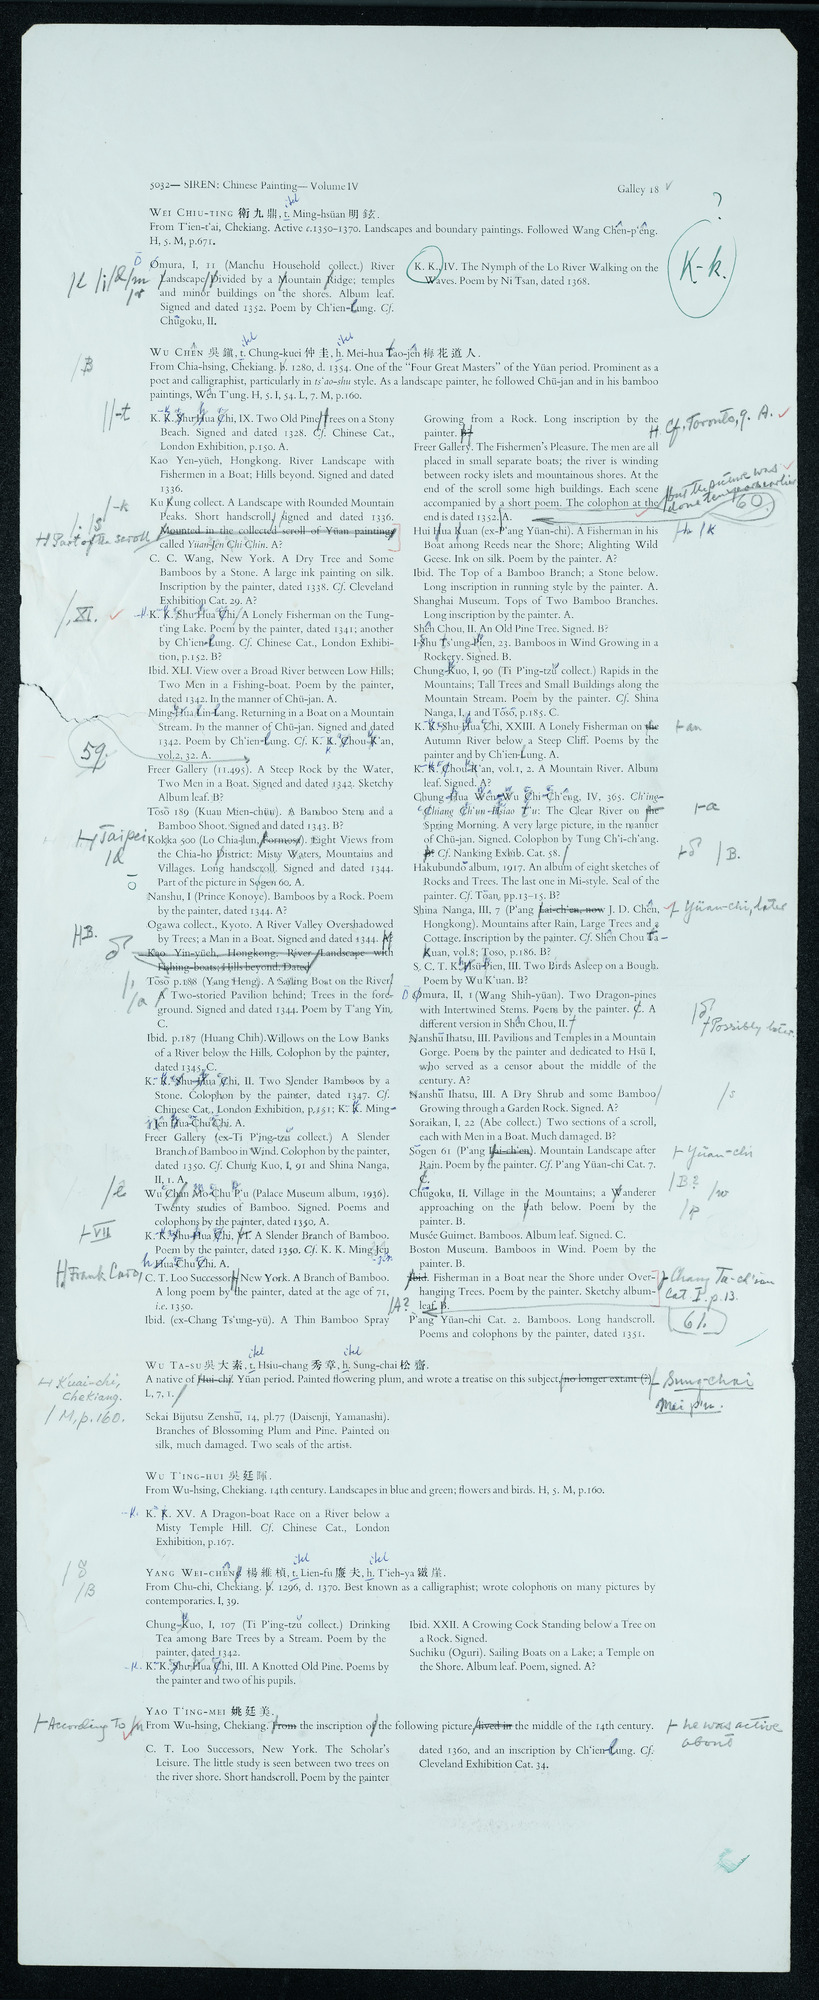 5032— SIREN: Chinese Painting— Volume IV
Galley 18
?
K-k.
WEI CHIU-TING 衛九鼎, t. Ming-hsüan 明鉉.
From T'ien-t'ai, Chekiang. Active c.1350–1370. Landscapes and boundary paintings. Followed Wang Chen-p'eng.
H, 5. M, p.671.
Omura, I, 11 (Manchu Household collect.) River
Landscape Divided by a Mountain Ridge; temples
and minor buildings on the shores. Album leaf.
Signed and dated 1352. Poem by Ch'ien-Lung. Cf.
Chūgoku, II.
K. K., IV. The Nymph of the Lo River Walking on the
Waves. Poem by Ni Tsan, dated 1368.
WU CHEN 吳鎮, t. Chung-kuei 仲圭, h. Mei-hua Tao-jen 梅花道人.
/B
From Chia-hsing, Chekiang. b. 1280, d. 1354. One of the "Four Great Masters" of the Yüan period. Prominent as a
poet and calligraphist, particularly in ts'ao-shu style. As a landscape painter, he followed Chü-jan and in his bamboo
paintings, Wen T'ung. H, 5. I, 54. L, 7. M, p.160.
K. K. Shu Hua Chi, IX. Two Old Pine Trees on a Stony
Beach. Signed and dated 1328. Cf. Chinese Cat.,
London Exhibition, p.150. A.
Kao Yen-yüeh, Hongkong. River Landscape with
Fishermen in a Boat; Hills beyond. Signed and dated
1336.
Ku Kung collect. A Landscape with Rounded Mountain
Peaks. Short handscroll, signed and dated 1336.
Part of the scroll
Mounted in the collected scroll of Yüan paintings
called Yüan Jen Chi Chin. A?
C. C. Wang, New York. A Dry Tree and Some
Bamboos by a Stone. A large ink painting on silk.
Inscription by the painter, dated 1338. Cf. Cleveland
Exhibition Cat. 29. A?
/. XI.
K. K. Shu Hua Chi, A Lonely Fisherman on the Tung-
t'ing Lake. Poem by the painter, dated 1341; another
by Ch'ien-Lung. Cf. Chinese Cat., London Exhibi-
tion, p.152. B?
Ibid. XLI. View over a Broad River between Low Hills;
Two Men in a Fishing-boat. Poem by the painter,
dated 1342. In the manner of Chü-jan. A.
Ming Hua Lin Lang. Returning in a Boat on a Mountain
Stream. In the manner of Chü-jan. Signed and dated
1342. Poem by Ch'ien-Lung. Cf. K. K. Chou K'an,
vol.2, 32. A.
59
Freer Gallery (11.495). A Steep Rock by the Water,
Two Men in a Boat. Signed and dated 1342. Sketchy
Album leaf. B?
Tōsō 189 (Kuan Mien-chün). A Bamboo Stem and a
Bamboo Shoot. Signed and dated 1343. B?
Taipei
Kokka 500 (Lo Chia-lun, Formosa). Eight Views from
the Chia-ho District: Misty Waters, Mountains and
Villages. Long handscroll. Signed and dated 1344.
Part of the picture in Sōgen 60, A.
Nanshu, I (Prince Konoye). Bamboos by a Rock. Poem
by the painter, dated 1344. A?
HB.
Ogawa collect., Kyoto. A River Valley Overshadowed
by Trees; a Man in a Boat. Signed and dated 1344.
Kao Yin-yüeh, Hongkong. River Landscape with
Fishing-boats; Hills beyond. Dated
Tōsō p.188 (Yang Heng). A Sailing Boat on the River,
A Two-storied Pavilion behind; Trees in the fore-
ground. Signed and dated 1344. Poem by T'ang Yin.
C.
Ibid. p.187 (Huang Chih). Willows on the Low Banks
of a River below the Hills. Colophon by the painter,
dated 1345. C.
K. K. Shu Hua Chi, II. Two Slender Bamboos by a
Stone. Colophon by the painter, dated 1347. Cf.
Chinese Cat., London Exhibition, p.151; K. K. Ming-
Jen Hua Chu Chi. A.
Freer Gallery (ex-Ti P'ing-tzu collect.) A Slender
Branch of Bamboo in Wind. Colophon by the painter,
dated 1350. Cf. Chung Kuo, I, 91 and Shina Nanga,
II, 1. A.
Wu Chen Mo Chu P'u (Palace Museum album, 1936).
Twenty studies of Bamboo. Signed. Poems and
colophons by the painter, dated 1350, A.
VII
K. K. Shu Hua Chi, A Slender Branch of Bamboo.
Poem by the painter, dated 1350. Cf. K. K. Ming Jen
Hua Chu Chi. A.
Frank Caro,
C. T. Loo Successor, New York. A Branch of Bamboo.
A long poem by the painter, dated at the age of 71,
i.e. 1350.
Ibid. (ex-Chang Ts'ung-yü). A Thin Bamboo Spray
Growing from a Rock. Long inscription by the
painter.
Cf. Toronto, 9. A.
Freer Gallery. The Fishermen's Pleasure. The men are all
placed in small separate boats; the river is winding
between rocky islets and mountainous shores. At the
end of the scroll some high buildings. Each scene
accompanied by a short poem. The colophon at the
end is dated 1352. A.
but the picture was
done ten years earlier
60.
Hui Hua Kuan (ex-P'ang Yüan-chi). A Fisherman in his
Boat among Reeds near the Shore; Alighting Wild
Geese. Ink on silk. Poem by the painter. A?
Ibid. The Top of a Bamboo Branch; a Stone below.
Long inscription in running style by the painter. A.
Shanghai Museum. Tops of Two Bamboo Branches.
Long inscription by the painter. A.
Shen Chou, II. An Old Pine Tree. Signed. B?
I-Shu Ts'ung-Pien, 23. Bamboos in Wind Growing in a
Rockery. Signed. B.
Chung-Kuo, I, 90 (Ti P'ing-tzu collect.) Rapids in the
Mountains; Tall Trees and Small Buildings along the
Mountain Stream. Poem by the painter. Cf. Shina
Nanga, I, 1 and Tōsō, p.185. C.
K. K. Shu Hua Chi, XXIII. A Lonely Fisherman on the
an
Autumn River below a Steep Cliff. Poems by the
painter and by Ch'ien-Lung. A.
K. K. Chou K'an, vol.1, 2. A Mountain River. Album
leaf. Signed. A?
Chung-Hua Wen-Wu Chi-Ch'eng, IV, 365. Ch'ing-
Chiang Ch'un-Hsiao T'u: The Clear River on the
a
Spring Morning. A very large picture, in the manner
of Chü-jan. Signed. Colophon by Tung Ch'i-ch'ang.
Cf. Nanking Exhib. Cat. 58.
/B.
Hakubundo album, 1917. An album of eight sketches of
Rocks and Trees. The last one in Mi-style. Seal of the
painter. Cf. Tōan, pp.13–15. B?
Shina Nanga, III, 7 (P'ang Lai-ch'en, now J. D. Chen,
Yüan-chi, later
Hongkong). Mountains after Rain, Large Trees and a
Cottage. Inscription by the painter. Cf. Shen Chou Ta-
Kuan, vol.8; Toso, p.186. B?
S. C. T. K. Hsü Pien, III. Two Birds Asleep on a Bough.
Poem by Wu K'uan. B?
Omura, II, 1 (Wang Shih-yüan). Two Dragon-pines
with Intertwined Stems. Poem by the painter. C. A
different version in Shen Chou, II.
Possibly later.
Nanshū Ihatsu, III. Pavilions and Temples in a Mountain
Gorge. Poem by the painter and dedicated to Hsü I,
who served as a censor about the middle of the
century. A?
Nanshū Ihatsu, III. A Dry Shrub and some Bamboo
/s
Growing through a Garden Rock. Signed. A?
Soraikan, I, 22 (Abe collect.) Two sections of a scroll,
each with Men in a Boat. Much damaged. B?
Sōgen 61 (P'ang Lai-ch'en). Mountain Landscape after
Yüan-chi
Rain. Poem by the painter. Cf. P'ang Yüan-chi Cat. 7.
C.
/B?
Chūgoku, II. Village in the Mountains; a Wanderer
/w
approaching on the Path below. Poem by the
/p
painter. B.
Musée Guimet. Bamboos. Album leaf. Signed. C.
Boston Museum. Bamboos in Wind. Poem by the
painter. B.
Ibid. Fisherman in a Boat near the Shore under Over-
hanging Trees. Poem by the painter. Sketchy album-
leaf. B.
Chang Ta-ch'ien
Cat I. p.13.
/A?
61.
P'ang Yüan-chi Cat. 2. Bamboos. Long handscroll.
Poems and colophons by the painter, dated 1351.
WU TA-SU 吳大素, t. Hsiu-chang 秀章, h. Sung-chai 松齋.
Kuai-chi,
Chekiang.
/M, p.160.
A native of Hui-chi. Yüan period. Painted flowering plum, and wrote a treatise on this subject, (no longer extant (?)
L, 7, 1.
Sung-chai
Mei p'u.
Sekai Bijutsu Zenshū, 14, pl.77 (Daisenji, Yamanashi).
Branches of Blossoming Plum and Pine. Painted on
silk, much damaged. Two seals of the artist.
WU T'ING-HUI 吳廷暉.
From Wu-hsing, Chekiang. 14th century. Landscapes in blue and green; flowers and birds. H, 5. M, p.160.
K. K. XV. A Dragon-boat Race on a River below a
Misty Temple Hill. Cf. Chinese Cat., London
Exhibition, p.167.
YANG WEI-CHEN 楊維楨, t. Lien-fu 廉夫, h. T'ieh-ya 鐵崖.
/B
From Chu-chi, Chekiang. b. 1296, d. 1370. Best known as a calligraphist; wrote colophons on many pictures by
contemporaries. I, 39.
Chung-Kuo, I, 107 (Ti P'ing-tzu collect.) Drinking
Tea among Bare Trees by a Stream. Poem by the
painter, dated 1342.
K. K. Shu Hua Chi, III. A Knotted Old Pine. Poems by
the painter and two of his pupils.
Ibid. XXII. A Crowing Cock Standing below a Tree on
a Rock. Signed.
Suchiku (Oguri). Sailing Boats on a Lake; a Temple on
the Shore. Album leaf. Poem, signed. A?
YAO T'ING-MEI 姚廷美.
According to
From Wu-hsing, Chekiang. From the inscription of the following picture, lived in the middle of the 14th century.
he was active
about
C. T. Loo Successors, New York. The Scholar's
Leisure. The little study is seen between two trees on
the river shore. Short handscroll. Poem by the painter
dated 1360, and an inscription by Ch'ien-Lung. Cf.
Cleveland Exhibition Cat. 34.